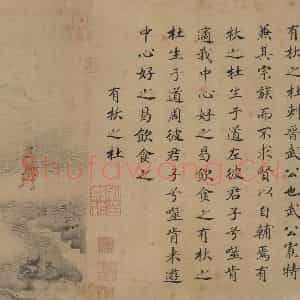 有杕之杜刺晉武公也武公寡特
兼其宗族而不求賢以自輔焉有
杕之杜生于道左彼君子兮噬肯
適我中心好之曷飲食之有杕之
杜生于道周彼君子兮噬肯来遊
中心好之曷飲食之
有杕之杜
shufawang.CN